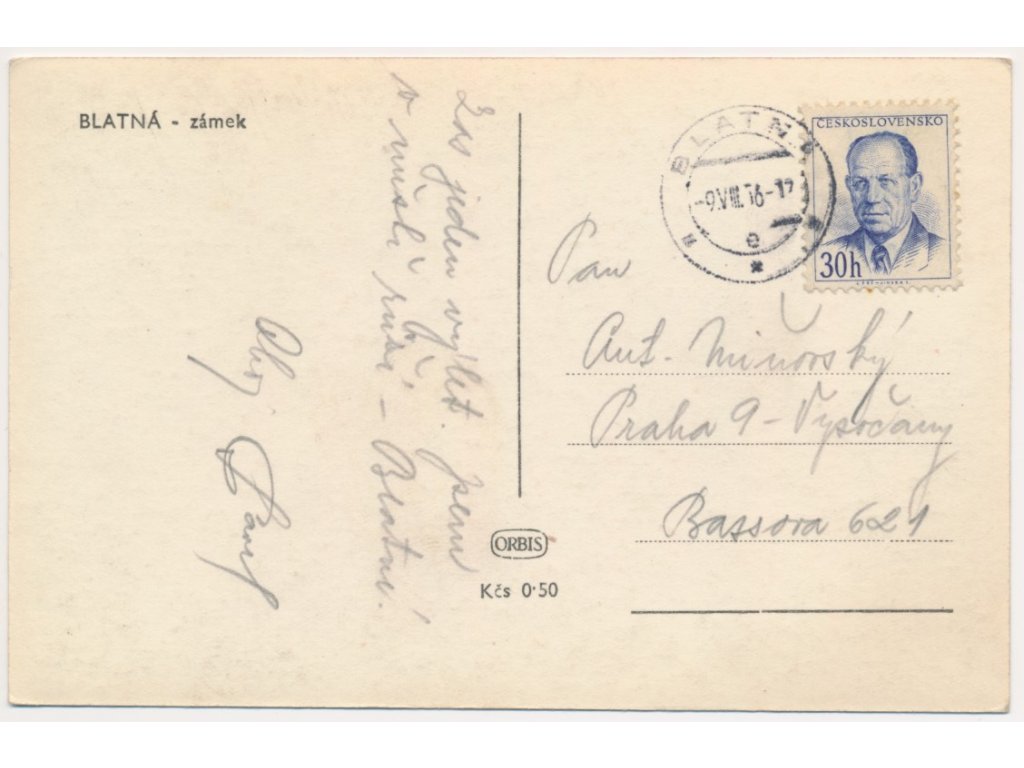 BLATNÁ - zámek
Zas jeden výlet. Jsem
v městě růží - Blatné!
Ahoj
BLATNÁ
-9.VIII.56-17
e
ČESKOSLOVENSKO
30h
Pan
Ant. Miňovský
Praha 9 - Vysočany
Bassova 621
ORBIS
Kčs 0·50